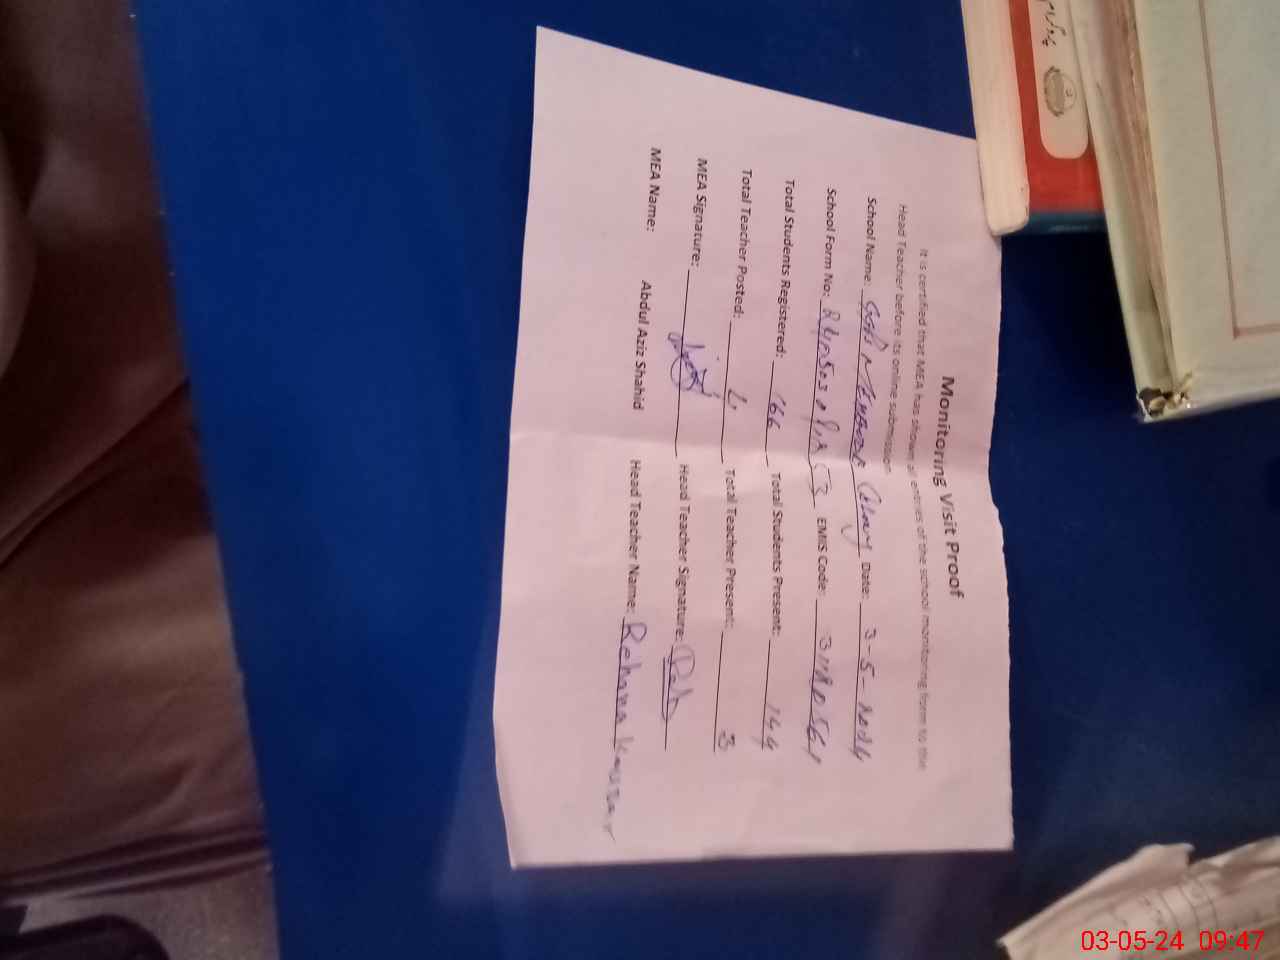 Monitoring Visit Proof
It is certified that MEA has shown all entries of the school monitoring form to the
Head Teacher before its online submission
School Name: Colony Date: 3-5-2024
School Form No: EMIS Code:
Total Students Registered: 166 Total Students Present: 144
Total Teacher Posted: 4 Total Teacher Present: 3
MEA Signature: Head Teacher Signature:
MEA Name: Abdul Aziz Shahid Head Teacher Name: Rehana Kausar
03-05-24 09:47